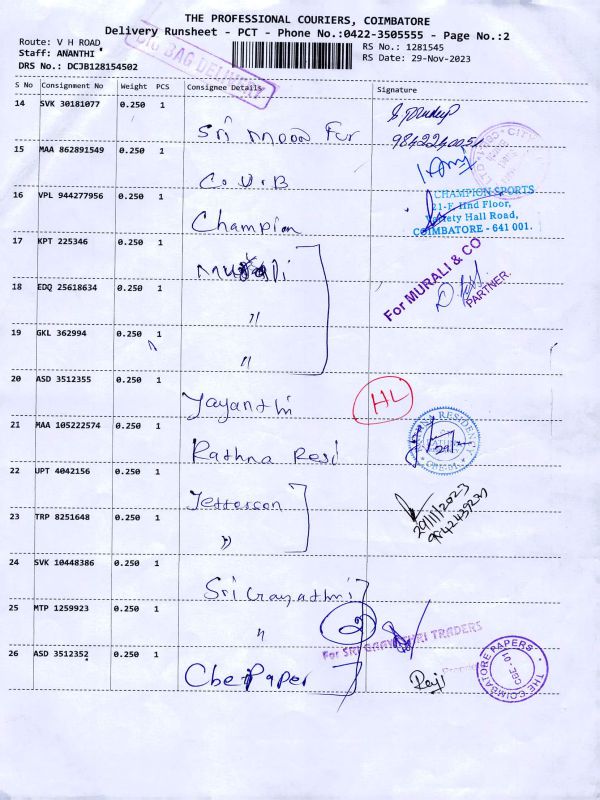 THE PROFESSIONAL COURIERS, COIMBATORE
Delivery Runsheet - PCT - Phone No.:0422-3505555 - Page No.:2
Route: V H ROAD
Staff: ANANTHI
DRS No.: DCJB128154502
BIG BAG DELIVERY
RS No.: 1281545
RS Date: 29-Nov-2023
S No Consignment No Weight PCS Consignee Details Signature
14 SVK 30181077 0.250 1
Sri Moon Fur
9842240051
15 MAA 862891549 0.250 1
C.U.B
CITY
16 VPL 944277956 0.250 1
Champion
CHAMPION SPORTS
21-F, IInd Floor,
Society Hall Road,
COIMBATORE - 641 001.
17 KPT 225346 0.250 1
Murali
For MURALI & CO
PARTNER.
18 EDQ 25618634 0.250 1
"
19 GKL 362994 0.250 1
"
20 ASD 3512355 0.250 1
Jayanthi
HL
21 MAA 105222574 0.250 1
Rathna Resi
RESIDENCY
CBE-01.
29/11
22 UPT 4042156 0.250 1
Jefferson
29/11/2023
23 TRP 8251648 0.250 1
"
24 SVK 10448386 0.250 1
Sri Gayathri
25 MTP 1259923 0.250 1
"
2
For SRI GAAYATHRI TRADERS
26 ASD 3512352 0.250 1
Cbe Paper
THE COIMBATORE PAPERS
CBE-01